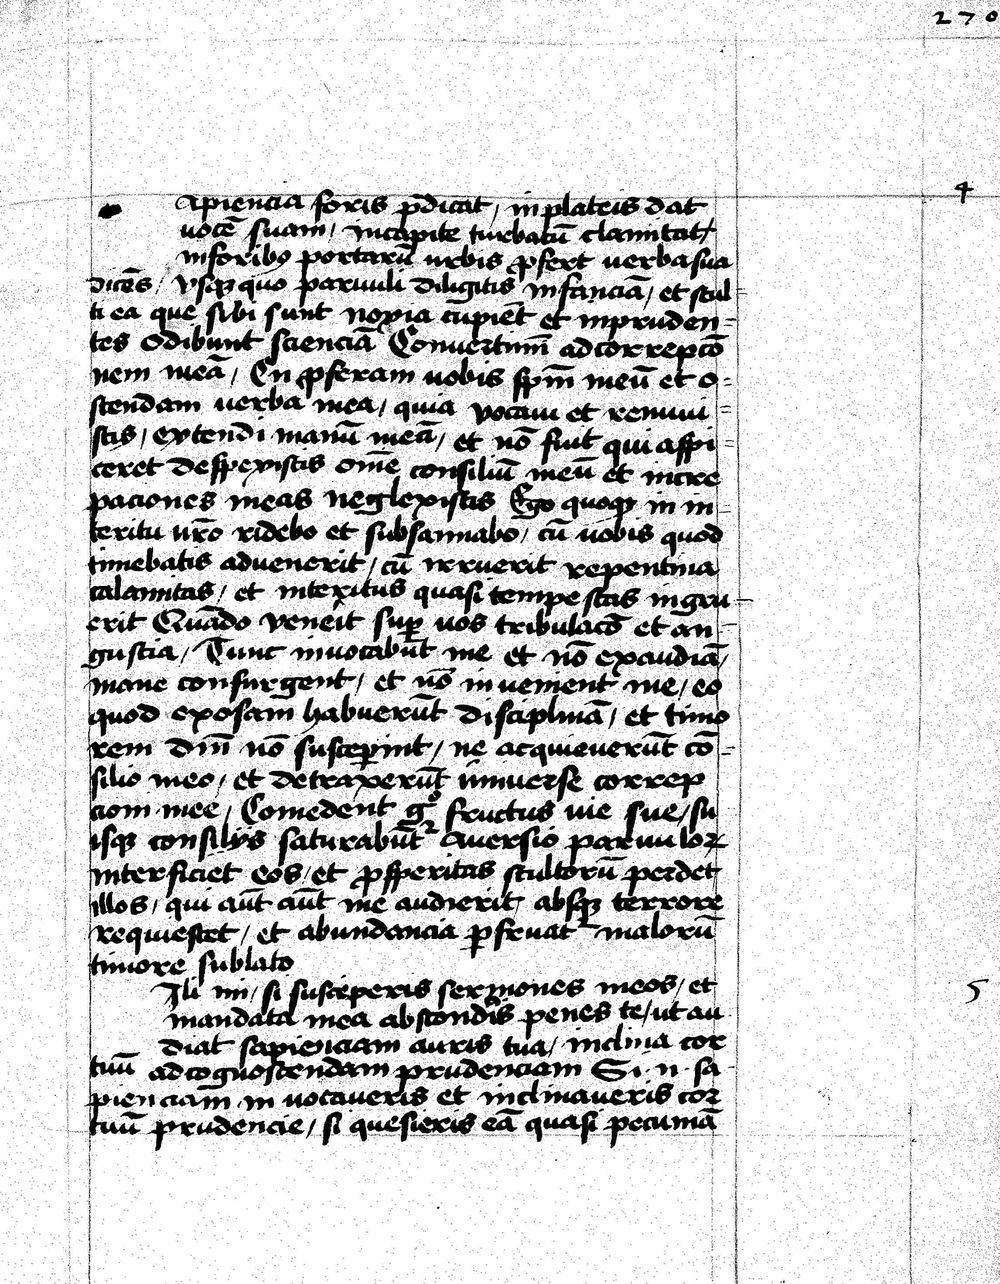 270
4
apiencia foris p̄dicat / in plateis dat
uocē suam / in capite turbarū clamitat /
in foribꝫ portarū urbis ꝓfert uerba sua
dicēs / vsqꝫ quo paruuli diligitis infanciā / et stul
ti ea que sibi sunt noxia cupiēt et inpruden
tes odibunt scienciā Conuertimī ad correpcō
nem meā / En ꝓferam uobis spm̄ meū et o
stendam uerba mea / quia vocaui et renuui
stis / extendi manū meā / et nō fuit qui aspi
ceret despexistis om̄e consiliū meū et incre
paciones meas neglexistis Ego quoqꝫ in in
teritu ur̄o ridebo et subsannabo / cū uobis quod
timebatis aduenerit / cū irruerit repentina
calamitas / et interitus quasi tempestas ingru
erit Quādo veneit suꝑ uos tribulacō et an
gustia / Tunc inuocabūt me et nō exaudiā /
mane consurgent / et nō inuenient me / eo
quod exosam̄ habuerūt disciplinā / et timo
rem dn̄i nō susceꝑint / ne acquieuerūt cō
silio meo / et detraxerūt uniuerse correp
ciom mee / Comedent gᵒ fructus uie sue / su
isqꝫ consilijs saturabūt᷑ Auersio paruuloꝝ
interficiet eos / et ꝓsperitas stultorū perdet
illos / qui aūt aūt me audierit absqꝫ terrore
requiescet / et abundancia ꝑfruat᷑ malorū
timore sublato
Ili mi / si susceperis sermones meos / et
mandata mea absconderis penes te / ut au
diat sapienciam auris tua / inclina cor
tuū ad cognoscendam prudenciam Si n sa
pienciam in uocaueris et inclinaueris cor
tuū prudencie / si quesieris eā quasi pecuniā
5